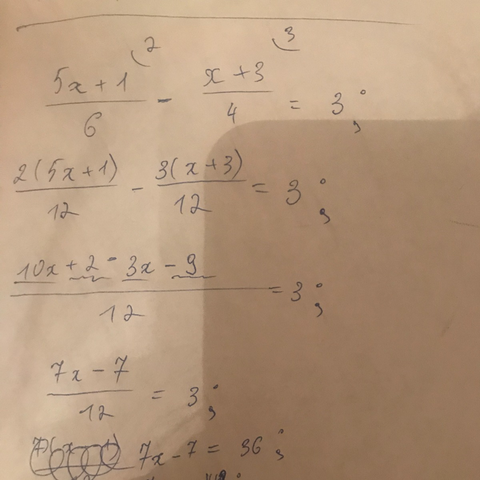 2 3
(5x+1)/6 - (x+3)/4 = 3;
2(5x+1)/12 - 3(x+3)/12 = 3;
(10x+2-3x-9)/12 = 3;
(7x-7)/12 = 3;
7x-7 = 36;